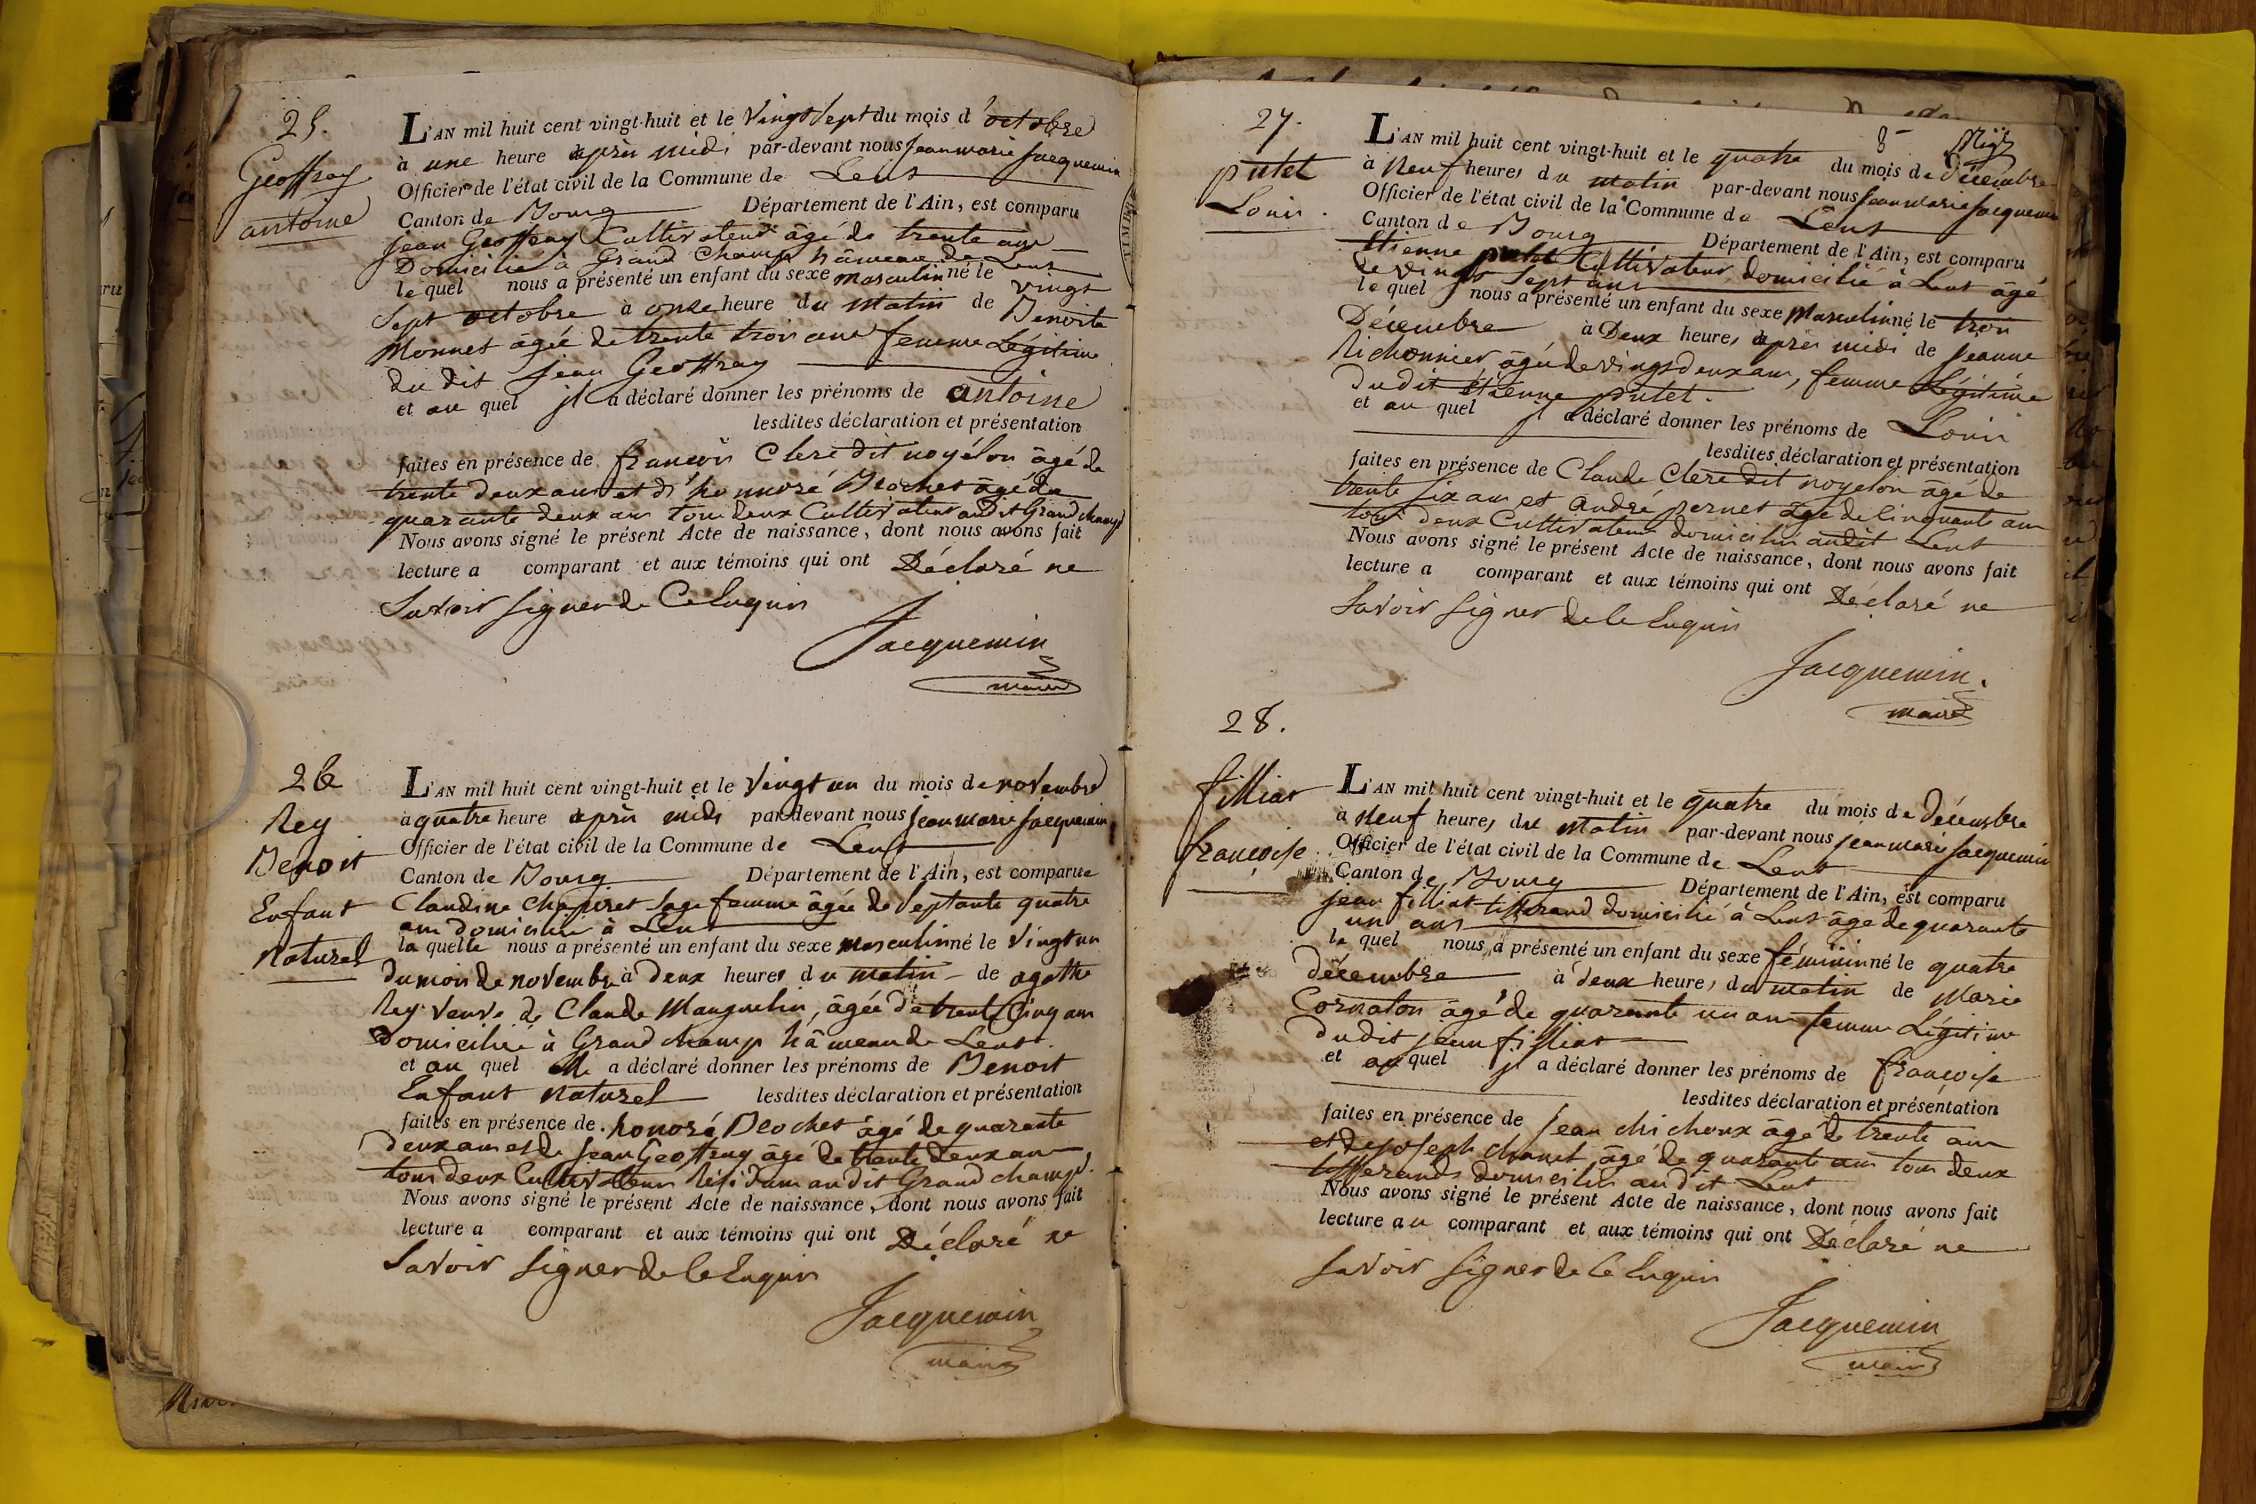 25.
Geoffray
antoine
L'AN mil huit cent vingt-huit et le Vingt Sept du mois d'octobre
à une heure après midi par-devant nous Jean marie Jacquemin
Officier de l'état civil de la Commune de Lent
Canton de Bourg Département de l'Ain, est comparu
Jean Geoffray Cultivateur âgé de trente ans
Domicilié à Grand Champ hâmeau de Lent
lequel nous a présenté un enfant du sexe masculin né le vingt
Sept octobre à onze heure du matin de Benoite
Monnet âgée de trente trois ans femme Légitime
du dit Jean Geoffray
et au quel il a déclaré donner les prénoms de antoine
lesdites déclaration et présentation
faites en présence de françois Clere dit noyélon âgé de
trente deux ans et d'honnoré Brochet âgé de
quarante deux ans tous deux Cultivateur audit Grand champ
Nous avons signé le présent Acte de naissance, dont nous avons fait
lecture a comparant et aux témoins qui ont Déclaré ne
Savoir signer de Ce Enquis
Jacquemin
maire
26
Rey
Benoit
Enfant
Naturel
L'AN mil huit cent vingt-huit et le Vingt un du mois de novembre
à quatre heure après midi par-devant nous jean marie jacquemin
Officier de l'état civil de la Commune de Lent
Canton de Bourg Département de l'Ain, est comparue
Claudine Chapiret Sage femme âgée de Septante quatre
ans domiciliée à Lent
la quelle nous a présenté un enfant du sexe masculin né le Vingt un
du mois de novembre à deux heures du matin de agathe
Rey veuve de Claude Manguelin, âgée de trente Cinq ans
domiciliée à Grand champ hâmeau de Lent.
et au quel elle a déclaré donner les prénoms de Benoit
Enfant Naturel lesdites déclaration et présentation
faites en présence de honoré Brochet âgé de quarante
deux ans et de Jean Geoffray âgé de trente deux ans
tous deux Cultivateurs Résidans audit Grand champ.
Nous avons signé le présent Acte de naissance, dont nous avons fait
lecture a comparant et aux témoins qui ont Déclaré ne
Savoir signer de Ce Enquis
Jacquemin
maire
27.
putet
Louis.
L'AN mil huit cent vingt-huit et le quatre du mois de Décembre
à Neuf heures du matin par-devant nous Jean marie Jacquemin
Officier de l'état civil de la Commune de Lent
Canton de Bourg Département de l'Ain, est comparu
Etienne putet Cultivateur domicilié à Lent âgé
de vingt Sept ans
lequel nous a présenté un enfant du sexe Masculin né le trois
Décembre à Deux heures après midi de Jeanne
Richonnier âgée de vingt deux ans, femme Légitime
du dit étienne putet.
et au quel il a déclaré donner les prénoms de Louis
lesdites déclaration et présentation
faites en présence de Claude Clere dit noyelon âgé de
trente Six ans et André pernet âgé de Cinquante ans
tous deux Cultivateurs domiciliés audit Lent
Nous avons signé le présent Acte de naissance, dont nous avons fait
lecture a comparant et aux témoins qui ont Déclaré ne
Savoir signer de Ce Enquis
Jacquemin.
maire
28.
filliat
françoise.
L'AN mil huit cent vingt-huit et le quatre du mois de Décembre
à Neuf heures du matin par-devant nous jean marie jacquemin
Officier de l'état civil de la Commune de Lent
Canton de Bourg Département de l'Ain, est comparu
jean filliat tisserand domicilié à Lent âgé de quarante
un ans
le quel nous a présenté un enfant du sexe féminin né le quatre
décembre à deux heures du matin de Marie
Cornaton âgé de quarante un ans femme Légitime
du dit jean filliat
et au quel il a déclaré donner les prénoms de françoise
lesdites déclaration et présentation
faites en présence de jean chichoux âgé de trente ans
et de joseph chanet âgé de quarante ans tous deux
tisserands domiciliés audit Lent
Nous avons signé le présent Acte de naissance, dont nous avons fait
lecture au comparant et aux témoins qui ont Déclaré ne
Savoir signer de Ce Enquis
Jacquemin
maire